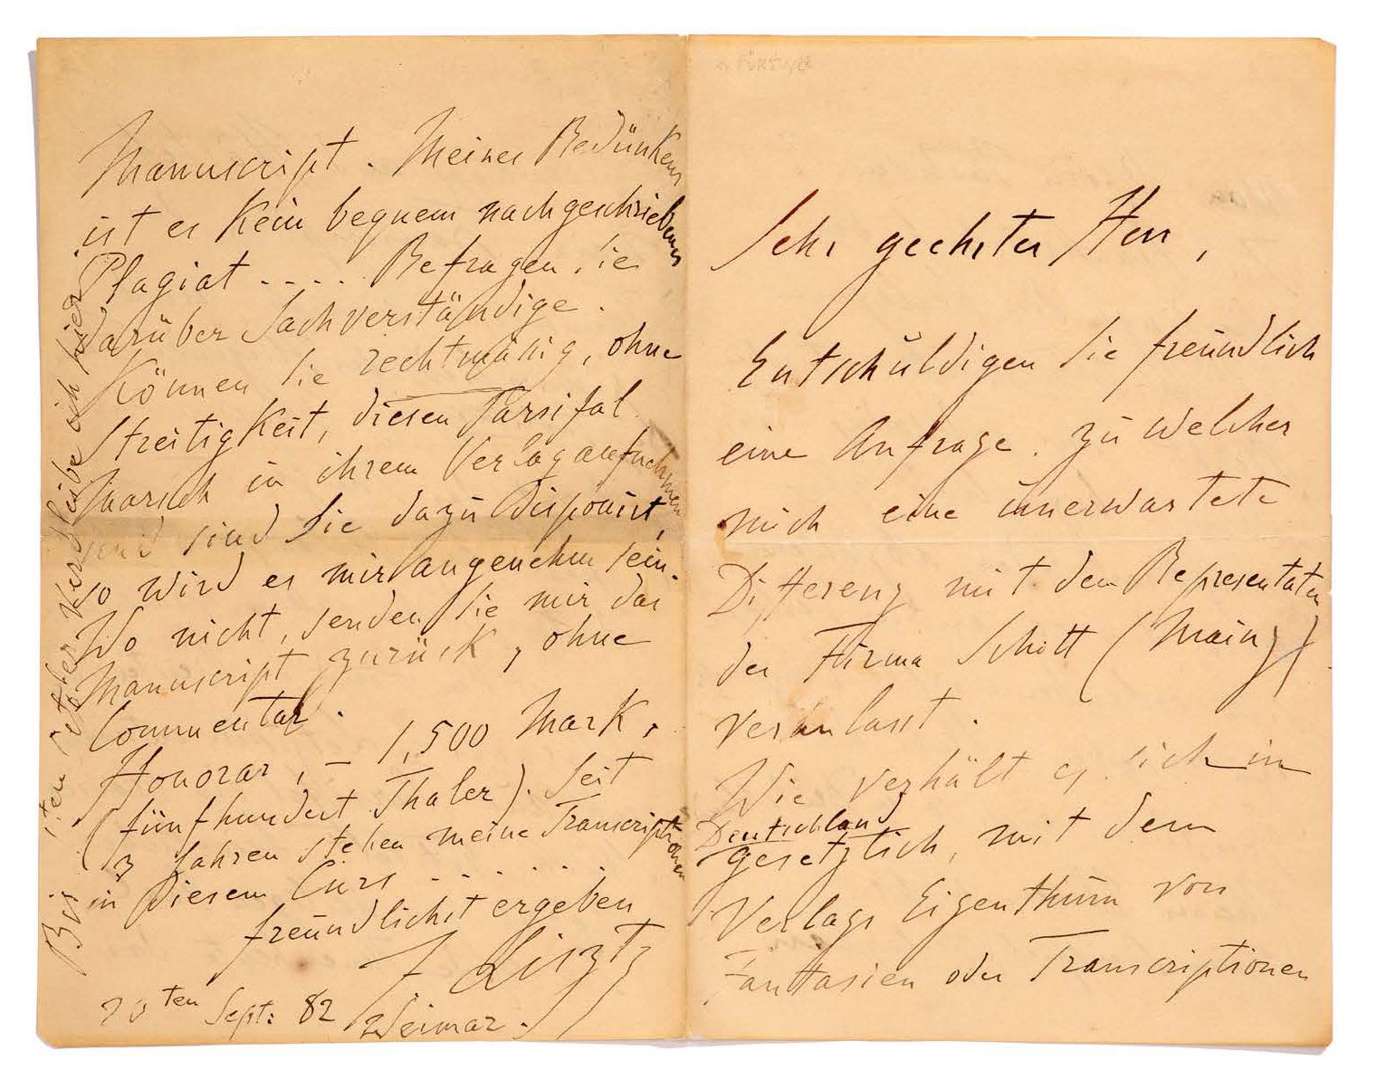 Sehr geehrter Herr,
Entschuldigen Sie freundlich
eine Anfrage. zu welcher
mich eine unerwartete
Differenz mit dem Representaten
der Firma Schott (Mainz)
veranlasst.
Wie verhält es sich in
Deutschland
gesetzlich, mit dem
Verlags Eigenthum von
Fantasien oder Transcriptionen
Manuscript. Meines Bedünkens
ist es kein bequem nachgeschriebenes
Plagiat..... Befragen Sie
darüber Sachverständige.
Können Sie rechtmäsig, ohne
Streitigkeit, diesen Parsifal
Marsch in ihrem Verlag aufnehmen
und sind Sie dazu disponirt,
so wird es mir angenehm sein.
Wo nicht, senden Sie mir das
Manuscript zurück, ohne
Commentar.
Honorar, – 1,500 Mark,
(fünfhundert Thaler). Seit
3 Jahren stehen meine Transcriptionen
in diesem Curs......
freundlichst ergeben
F Liszt
20ten Sept: 82 Weimar.
Bis ten October verbleibe ich hier.